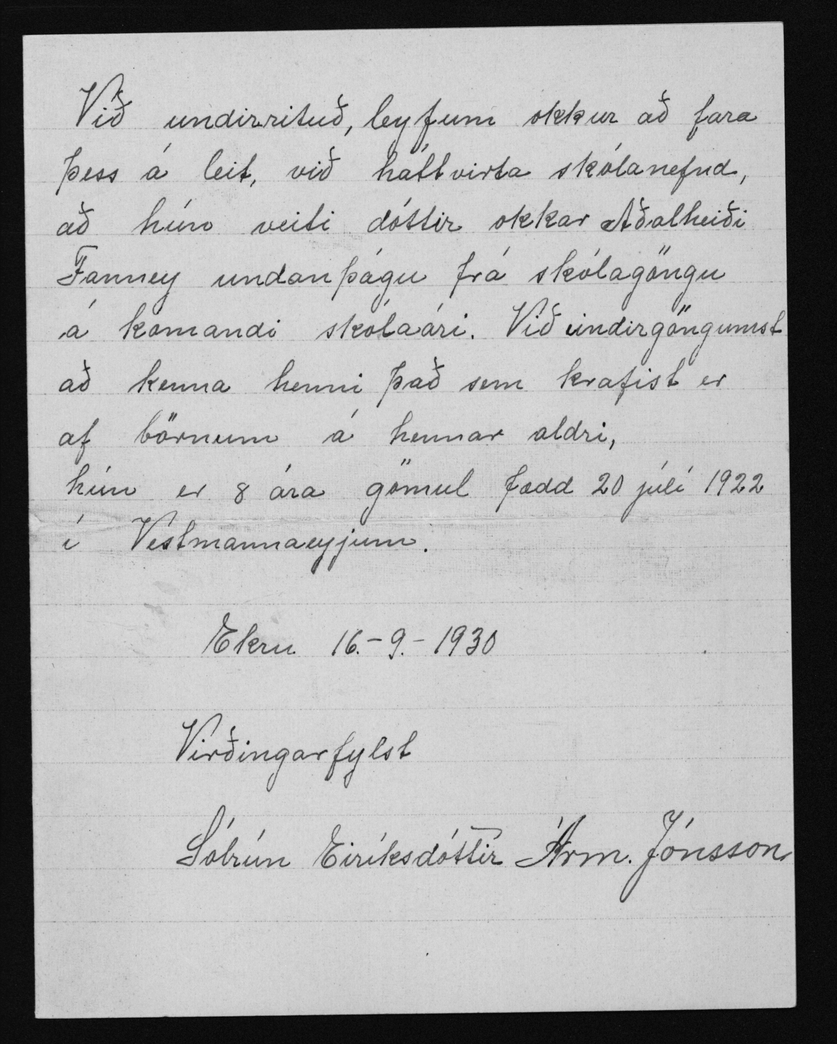 Við undirrituð, leyfum okkur að fara
þess á leit, við háttvirta skólanefnd,
að hún veiti dóttir okkar Aðalheiði
Fanney undanþágu frá skólagöngu
á komandi skólaári. Við undirgöngumst
að kenna henni það sem krafist er
af börnum á hennar aldri,
hún er 8 ára gömul fædd 20 júlí 1922
í Vestmannaeyjum.
Ekru 16.-9.-1930
Virðingarfylst
Sólrún Eiríksdóttir Árm. Jónsson